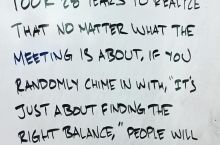 TOOK 28 YEARS TO REALIZE
THAT NO MATTER WHAT THE
MEETING IS ABOUT, IF YOU
RANDOMLY CHIME IN WITH, "IT'S
JUST ABOUT FINDING THE
RIGHT BALANCE," PEOPLE WILL